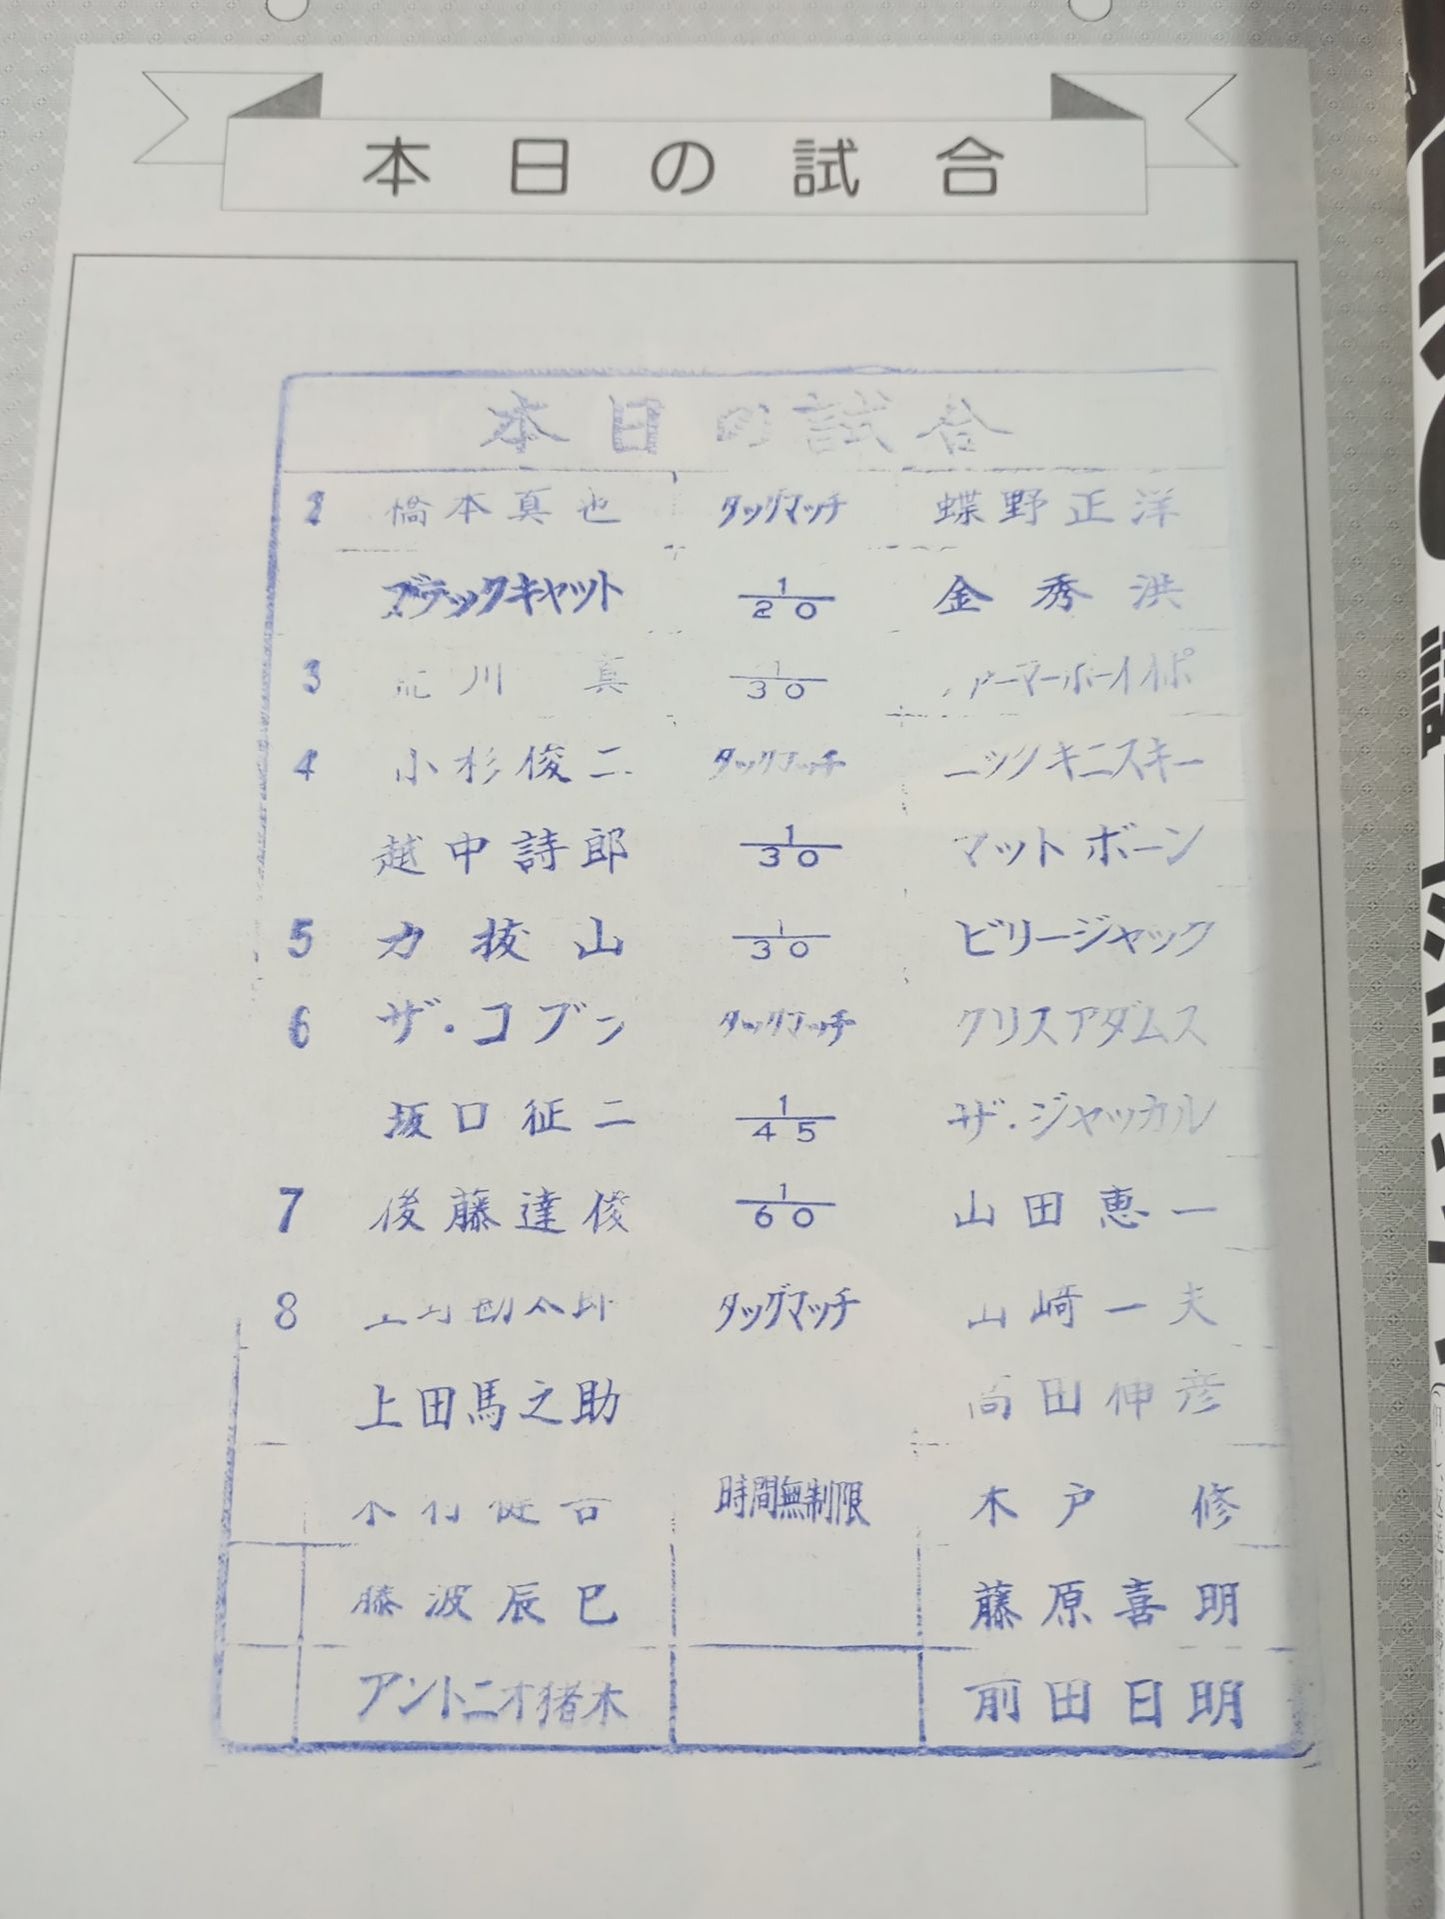 本日の試合
本日の試合
2 橋本真也 タッグマッチ 蝶野正洋
ブラックキャット 1/20 金秀洪
3 荒川 真 1/30
4 小杉俊二 タッグマッチ ニックキニスキー
越中詩郎 1/30 マットボーン
5 力抜山 1/30 ビリージャック
6 ザ・コブン タッグマッチ クリスアダムス
坂口征二 1/45 ザ・ジャッカル
7 後藤達俊 1/60 山田恵一
8 上野勘太郎 タッグマッチ 山崎一夫
上田馬之助 高田伸彦
木村健吾 時間無制限 木戸 修
藤波辰巳 藤原喜明
アントニオ猪木 前田日明